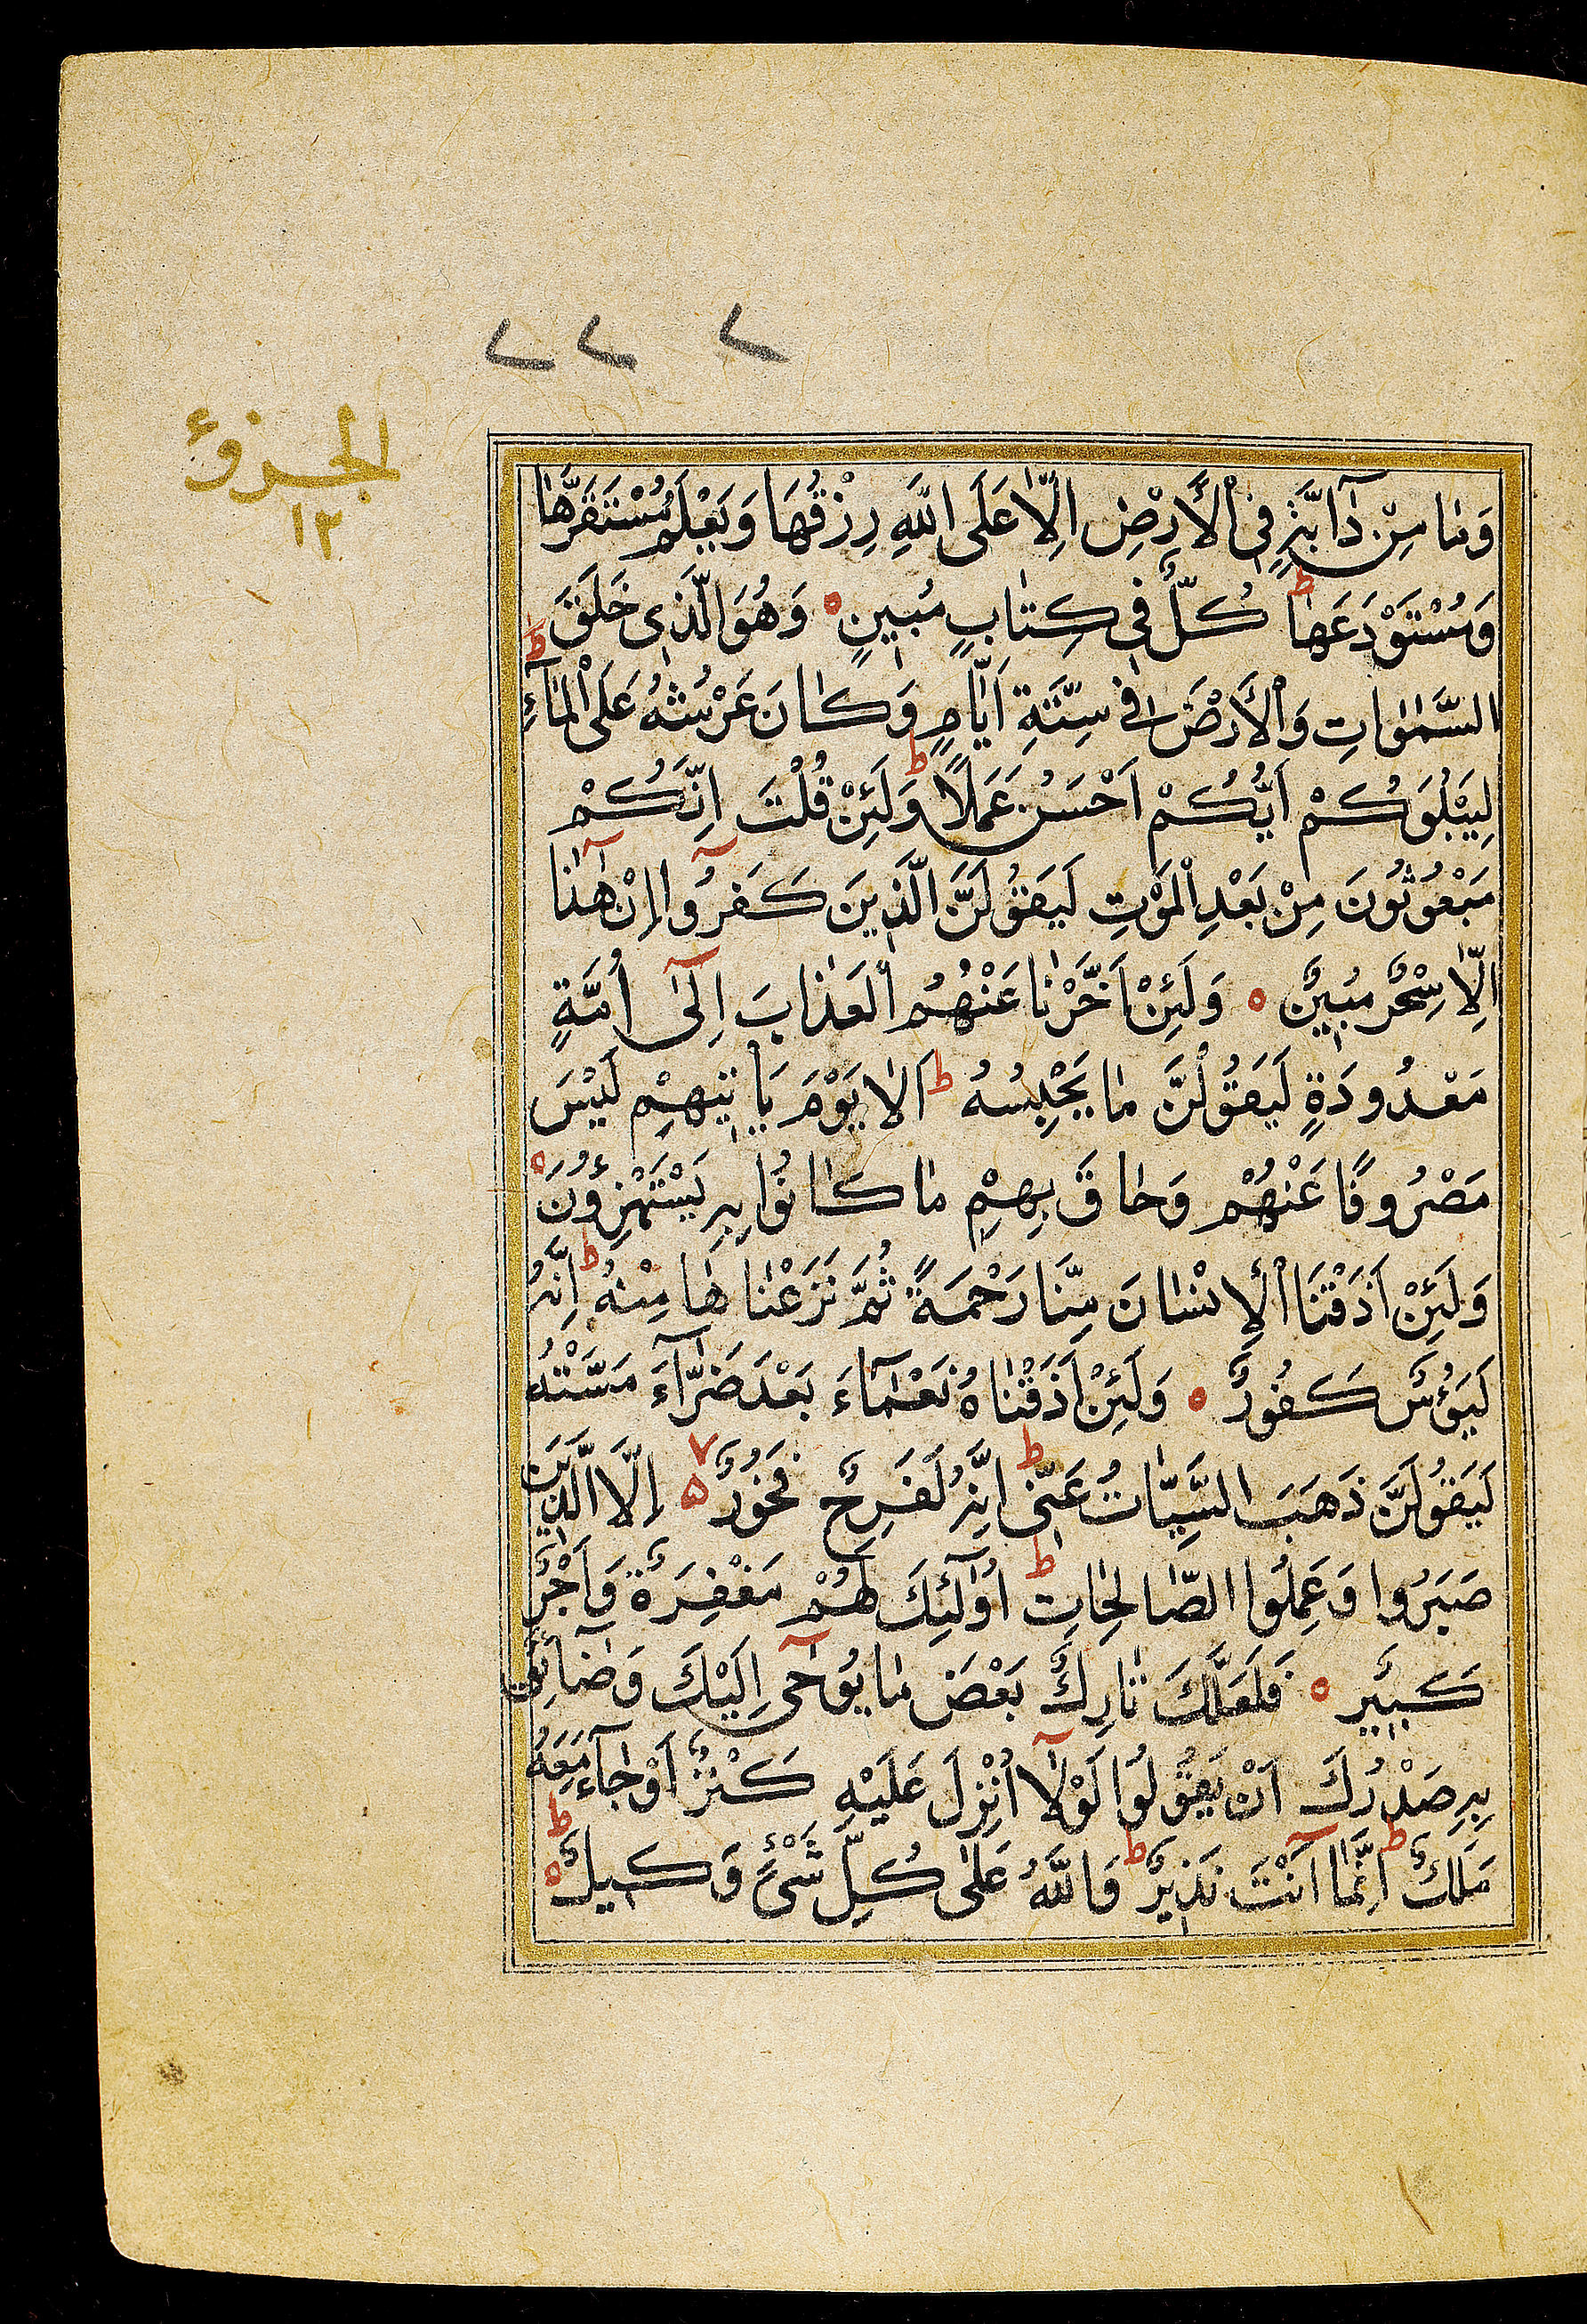 ٢ ٢ ٢
الجزؤ
١٢
وَمٰا مِنْ دٰآبَّةٍ فِي اْلأَرْضِ اِلّاٰ عَلَى اللّٰهِ رِزْقُهٰا وَيَعْلَمُ مُسْتَقَرَّهٰا
وَمُسْتَوْدَعَهٰا ط كُلٌّ في كِتٰابٍ مُبينٍ ه وَهُوَ الَّذي خَلَقَ
السَّمٰوٰاتِ وَاْلأَرْضَ في سِتَّةِ اَيّٰامٍ وَكٰانَ عَرْشُهُ عَلَى الْمٰآءِ ط
لِيَبْلُوَكُمْ اَيُّكُمْ اَحْسَنُ عَمَلًا ط وَلَئِنْ قُلْتَ اِنَّكُمْ
مَبْعُوثُونَ مِنْ بَعْدِ الْمَوْتِ لَيَقُولَنَّ الَّذينَ كَفَرُوآ إِنْ هٰذٰا
اِلّاٰ سِحْرٌ مُبينٌ ه وَلَئِنْ اَخَّرْنٰا عَنْهُمُ الْعَذٰابَ اِلٰٓى اُمَّةٍ
مَعْدُودَةٍ لَيَقُولُنَّ مٰا يَحْبِسُهُ ط اَلاٰ يَوْمَ يَأْتيهِمْ لَيْسَ
مَصْرُوفًا عَنْهُمْ وَحٰاقَ بِهِمْ مٰا كٰانُوا بِهِ يَسْتَهْزِؤُنَ ه
وَلَئِنْ اَذَقْنَا اْلأِنْسٰانَ مِنَّا رَحْمَةً ثُمَّ نَزَعْنٰاهٰا مِنْهُ ط اِنَّهُ
لَيَؤُسٌ كَفُورٌ ه وَلَئِنْ اَذَقْنٰاهُ نَعْمٰآءَ بَعْدَ ضَرّٰآءَ مَسَّتْهُ
لَيَقُولَنَّ ذَهَبَ السَّيِّئاتُ عَنّي ط اِنَّهُ لَفَرِحٌ فَخُورٌ ۷ ه إِلَّا الَّذينَ
صَبَرُوا وَعَمِلُوا الصّٰالِحٰاتِ ط اُولٰٓئِكَ لَهُمْ مَغْفِرَةٌ وَاَجْرٌ
كَبيرٌ ه فَلَعَلَّكَ تٰارِكٌ بَعْضَ مٰا يُوحٰٓى اِلَيْكَ وَضٰآئِقٌ
بِهِ صَدْرُكَ اَنْ يَقُولُوا لَوْلٰآ اُنْزِلَ عَلَيْهِ كَنْزٌ اَوْ جٰآءَ مَعَهُ
مَلَكٌ ط اِنَّمٰآ اَنْتَ نَذيرٌ ط وَاللّٰهُ عَلٰى كُلِّ شَيْءٍ وَكيلٌ ط ه